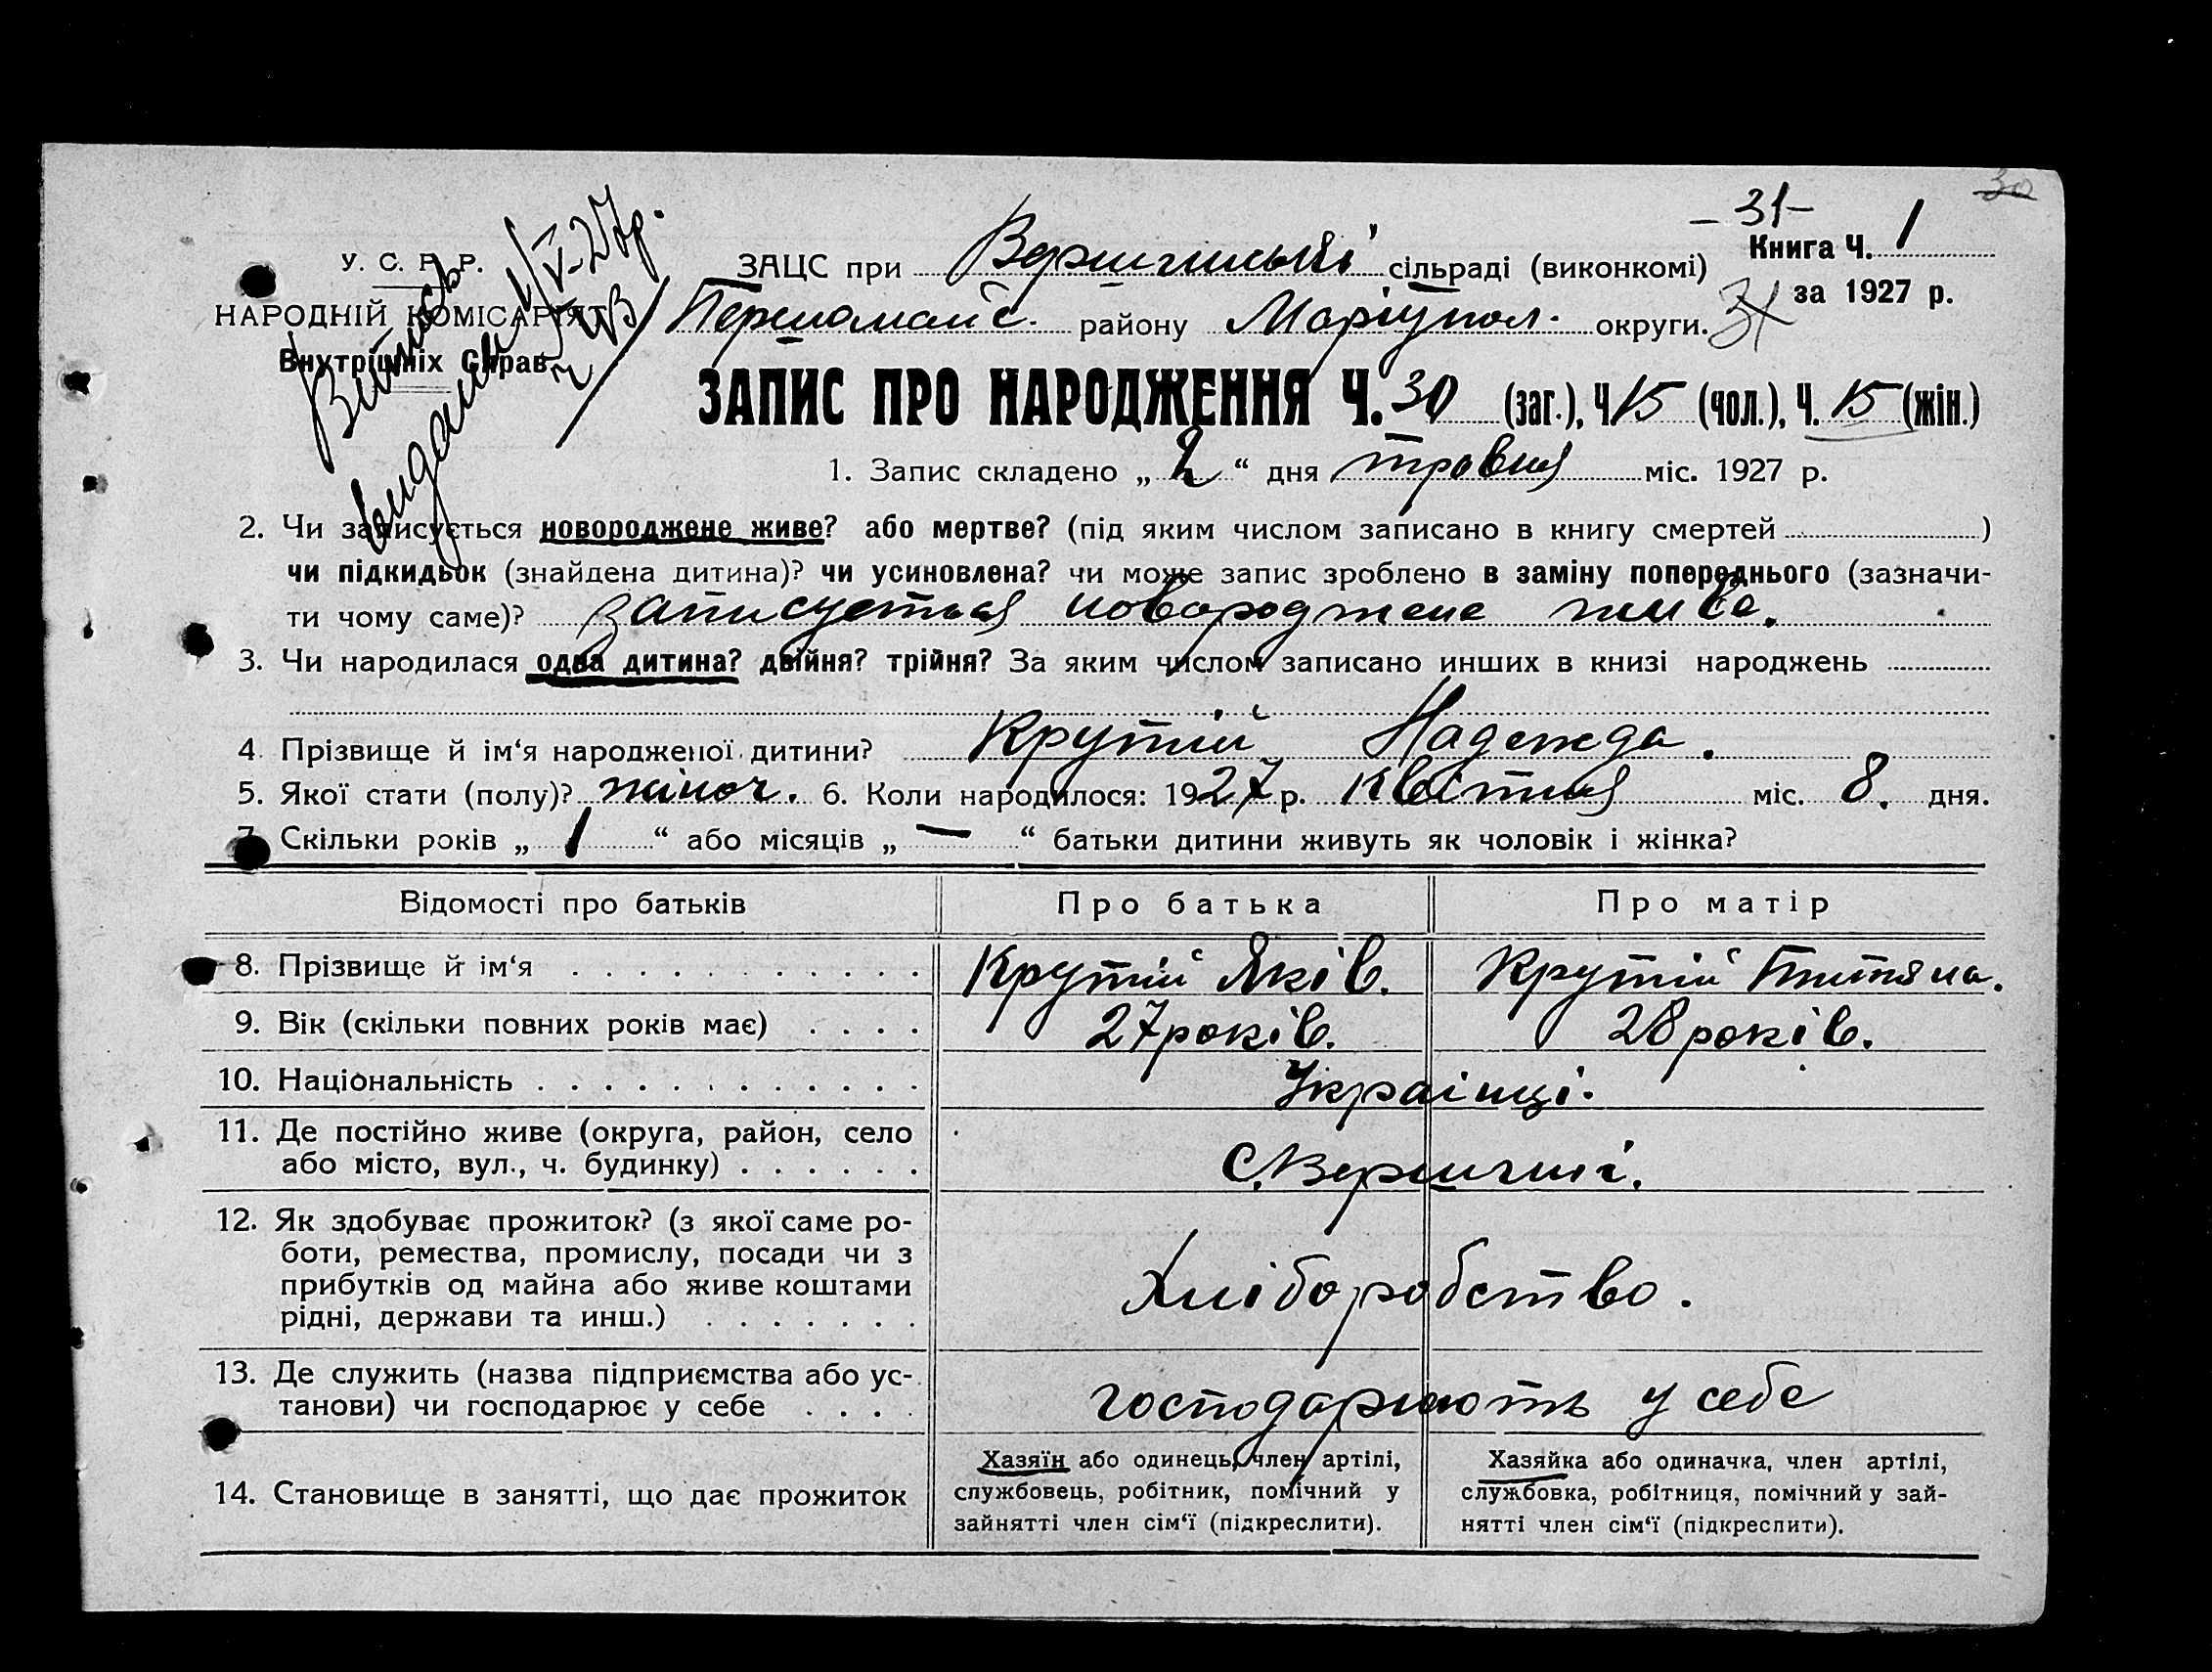 30
- 31 -
У. С. Р. Р.
НАРОДНІЙ КОМІСАРІЯТ
Внутрішніх Справ
Витпись видана
/V-27р.
ЗАЦС при Вершинській сільраді (виконкомі) Книга Ч. 1
Першомайс. району Маріупол. округи. 31 за 1927 р.
ЗАПИС ПРО НАРОДЖЕННЯ Ч. 30 (заг.), Ч. 15 (чол.), Ч. 15 (жін.)
1. Запис складено „ 2 “ дня травня міс. 1927 р.
2. Чи записується новороджене живе? або мертве? (під яким числом записано в книгу смертей )
чи підкидьок (знайдена дитина)? чи усиновлена? чи може запис зроблено в заміну попереднього (зазначи-
ти чому саме)? записується новороджене живе.
3. Чи народилася одна дитина? двійня? трійня? За яким числом записано инших в книзі народжень
4 Прізвище й ім‘я народженої дитини? Крутій Надежда.
5. Якої стати (полу)? жіноч. 6. Коли народилося: 1927 р. квітня міс. 8. дня.
7. Скільки років „ 1 “ або місяців „ — “ батьки дитини живуть як чоловік і жінка?
Відомості про батьків Про батька Про матір
8. Прізвище й ім‘я Крутій Яків. Крутій Титяна.
9. Вік (скільки повних років має) 27 років. 28 років.
10. Національність Украінці.
11. Де постійно живе (округа, район, село
або місто, вул., ч. будинку) С. Вершині.
12. Як здобуває прожиток? (з якої саме ро-
боти, ремества, промислу, посади чи з
прибутків од майна або живе коштами
рідні, держави та инш.) Хліборобство.
13. Де служить (назва підприємства або ус-
танови) чи господарює у себе господарюють у себе
14. Становище в занятті, що дає прожиток
Хазяїн або одинець, член артілі,
службовець, робітник, помічний у
зайнятті член сім‘ї (підкреслити).
Хазяйка або одиначка, член артілі,
службовка, робітниця, помічний у зай-
нятті член сім‘ї (підкреслити).